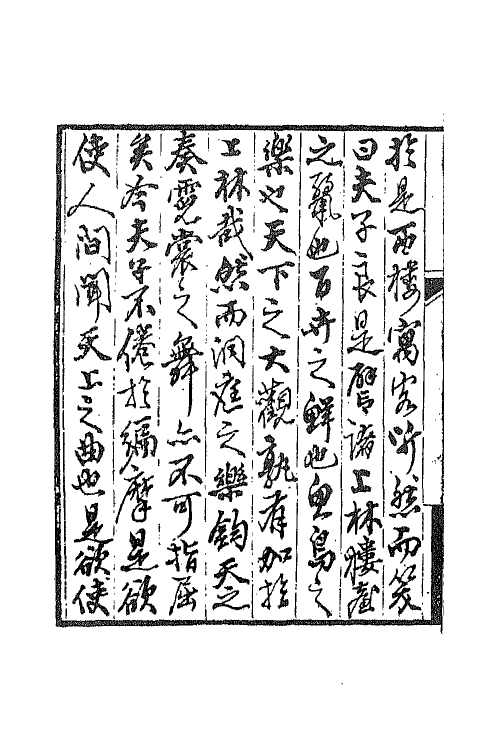 於是西樓寓客听然而笑
曰夫子之良是譬諸上林樓臺
之麗也百卉之鮮也魚鳥之
樂也天下之大觀孰有加於
上林哉然而洞庭之樂鈞天之
奏霓裳之舞亦不可指屈
矣今夫子不倦於編摩是欲
使人間聞天上之曲也是欲使